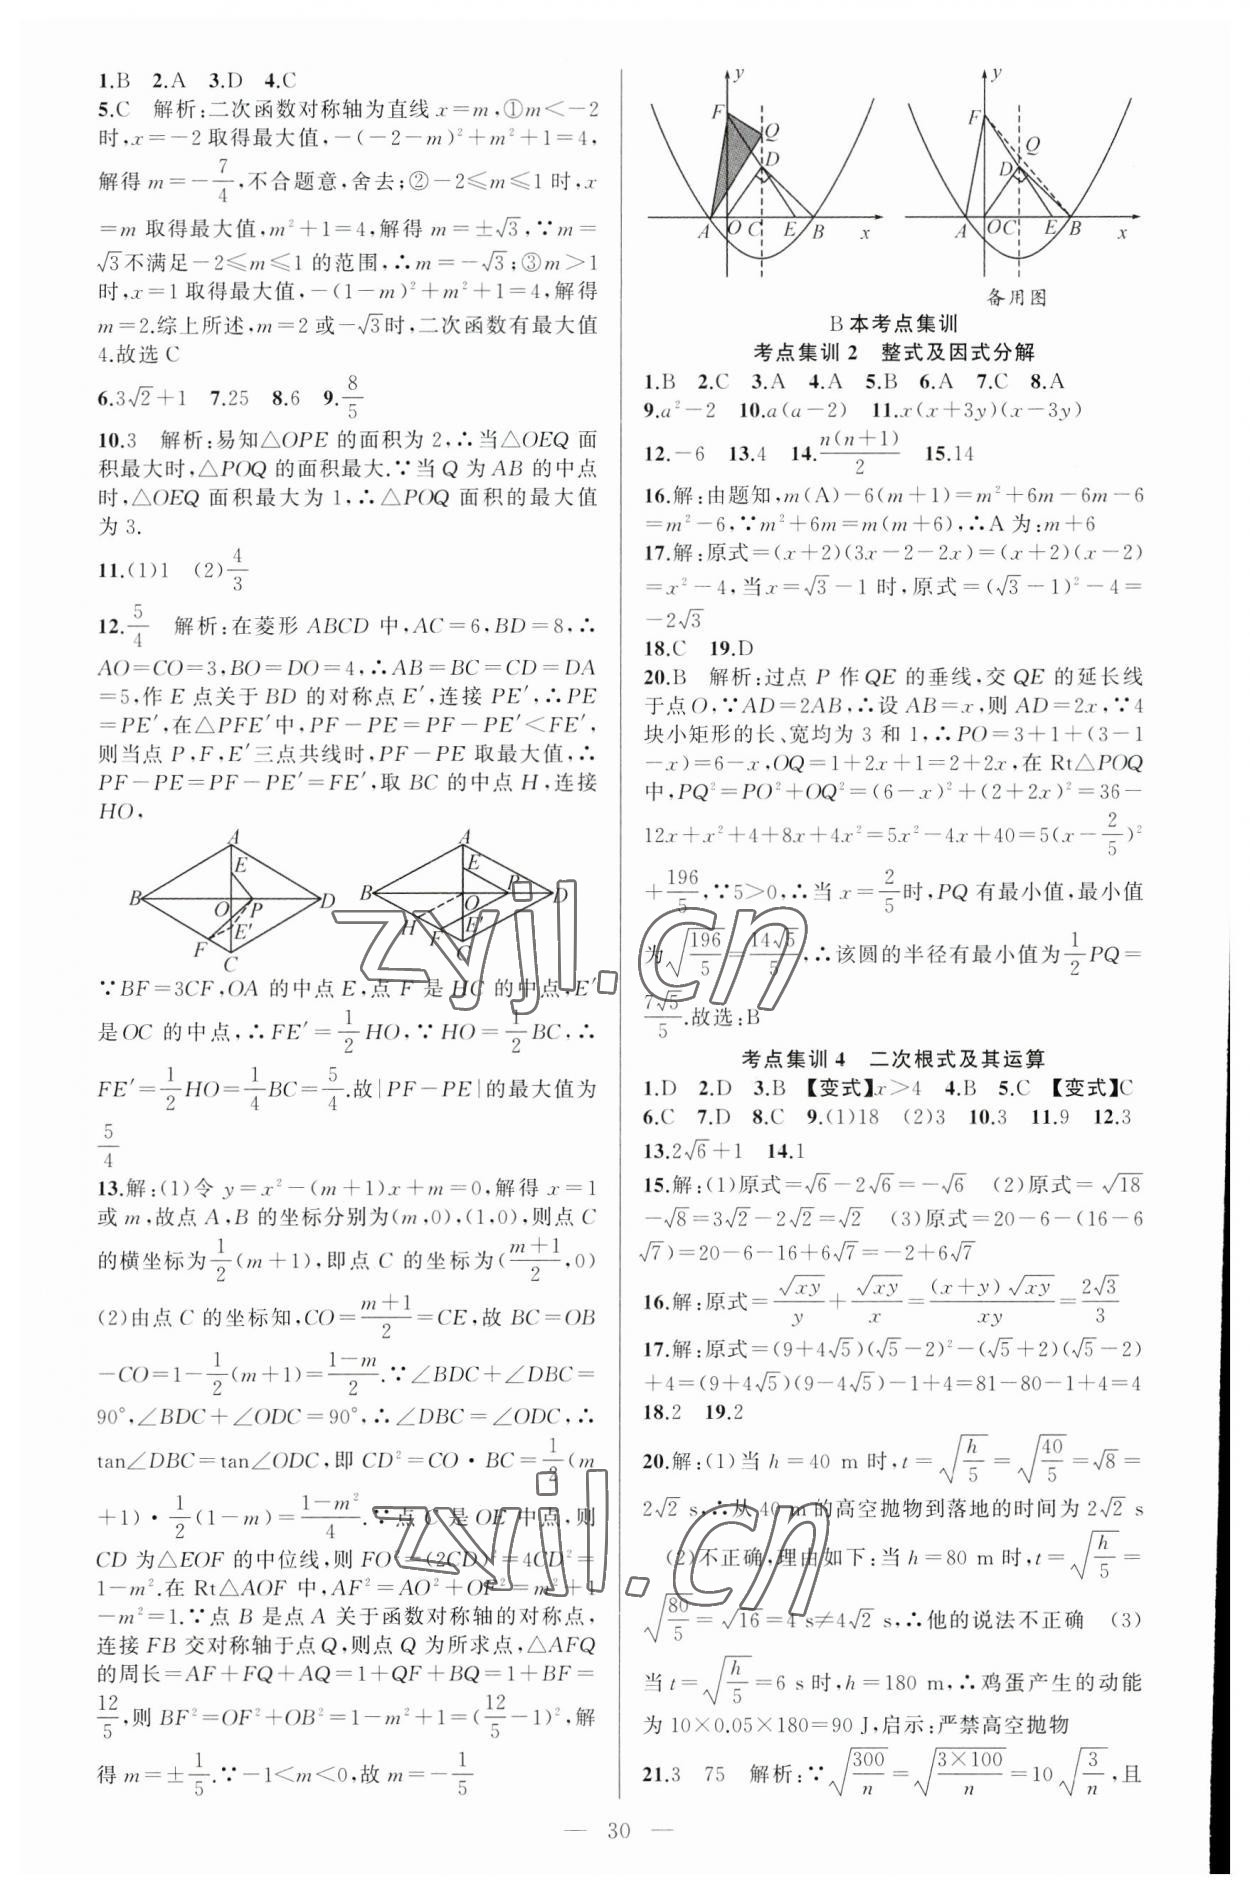 1.B 2.A 3.D 4.C
5.C 解析:二次函数对称轴为直线 x=m,①m<-2
时,x=-2取得最大值,-(-2-m)²+m²+1=4,
解得 m=-7/4,不合题意,舍去;②-2≤m≤1时,x
=m取得最大值,m²+1=4,解得 m=±√3,∵m=
√3不满足-2≤m≤1的范围,∴m=-√3;③m>1
时,x=1取得最大值,-(1-m)²+m²+1=4,解得
m=2.综上所述,m=2或-√3时,二次函数有最大值
4.故选C
6.3√2+1 7.25 8.6 9.8/5
10.3 解析:易知△OPE的面积为2,∴当△OEQ面
积最大时,△POQ的面积最大.∵当Q为AB的中点
时,△OEQ面积最大为1,∴△POQ面积的最大值
为3.
11.(1)1 (2)4/3
12.5/4 解析:在菱形ABCD中,AC=6,BD=8,∴
AO=CO=3,BO=DO=4,∴AB=BC=CD=DA
=5,作E点关于BD的对称点E′,连接PE′,∴PE
=PE′,在△PFE′中,PF-PE=PF-PE′<FE′,
则当点P,F,E′三点共线时,PF-PE取最大值,∴
PF-PE=PF-PE′=FE′,取BC的中点H,连接
HO,
A E B O P D F E′ C
A E B O P D H F E′ C
∵BF=3CF,OA的中点E,点F是HC的中点,E′
是OC的中点,∴FE′=1/2HO,∵HO=1/2BC,∴
FE′=1/2HO=1/4BC=5/4.故|PF-PE|的最大值为
5/4
13.解:(1)令 y=x²-(m+1)x+m=0,解得 x=1
或m,故点A,B的坐标分别为(m,0),(1,0),则点C
的横坐标为1/2(m+1),即点C的坐标为((m+1)/2,0)
(2)由点C的坐标知,CO=(m+1)/2=CE,故BC=OB
-CO=1-1/2(m+1)=(1-m)/2.∵∠BDC+∠DBC=
90°,∠BDC+∠ODC=90°,∴∠DBC=∠ODC,∴
tan∠DBC=tan∠ODC,即CD²=CO·BC=1/2(m
+1)·1/2(1-m)=(1-m²)/4.∵点C是OE中点,则
CD为△EOF的中位线,则FO²=(2CD)²=4CD²=
1-m².在Rt△AOF中,AF²=AO²+OF²=m²+1
-m²=1.∵点B是点A关于函数对称轴的对称点,
连接FB交对称轴于点Q,则点Q为所求点,△AFQ
的周长=AF+FQ+AQ=1+QF+BQ=1+BF=
12/5,则BF²=OF²+OB²=1-m²+1=(12/5-1)²,解
得m=±1/5.∵-1<m<0,故m=-1/5
y F Q D A O C E B x
y F Q D A O C E B x
备用图
B本考点集训
考点集训2 整式及因式分解
1.B 2.C 3.A 4.A 5.B 6.A 7.C 8.A
9.a²-2 10.a(a-2) 11.x(x+3y)(x-3y)
12.-6 13.4 14.n(n+1)/2 15.14
16.解:由题知,m(A)-6(m+1)=m²+6m-6m-6
=m²-6,∵m²+6m=m(m+6),∴A为:m+6
17.解:原式=(x+2)(3x-2-2x)=(x+2)(x-2)
=x²-4,当x=√3-1时,原式=(√3-1)²-4=
-2√3
18.C 19.D
20.B 解析:过点P作QE的垂线,交QE的延长线
于点O,∵AD=2AB,∴设AB=x,则AD=2x,∵4
块小矩形的长、宽均为3和1,∴PO=3+1+(3-1
-x)=6-x,OQ=1+2x+1=2+2x,在Rt△POQ
中,PQ²=PO²+OQ²=(6-x)²+(2+2x)²=36-
12x+x²+4+8x+4x²=5x²-4x+40=5(x-2/5)²
+196/5,∵5>0,∴当x=2/5时,PQ有最小值,最小值
为√(196/5)=14√5/5,∴该圆的半径有最小值为1/2PQ=
7√5/5.故选:B
考点集训4 二次根式及其运算
1.D 2.D 3.B 【变式】x>4 4.B 5.C 【变式】C
6.C 7.D 8.C 9.(1)18 (2)3 10.3 11.9 12.3
13.2√6+1 14.1
15.解:(1)原式=√6-2√6=-√6 (2)原式=√18
-√8=3√2-2√2=√2 (3)原式=20-6-(16-6
√7)=20-6-16+6√7=-2+6√7
16.解:原式=√xy/y+√xy/x=(x+y)√xy/xy=2√3/3
17.解:原式=(9+4√5)(√5-2)²-(√5+2)(√5-2)
+4=(9+4√5)(9-4√5)-1+4=81-80-1+4=4
18.2 19.2
20.解:(1)当h=40 m时,t=√(h/5)=√(40/5)=√8=
2√2 s,∴从40 m的高空抛物到落地的时间为2√2 s
(2)不正确,理由如下:当h=80 m时,t=√(h/5)=
√(80/5)=√16=4 s≠4√2 s,∴他的说法不正确 (3)
当t=√(h/5)=6 s时,h=180 m,∴鸡蛋产生的动能
为10×0.05×180=90 J,启示:严禁高空抛物
21.3 75 解析:∵√(300/n)=√(3×100/n)=10√(3/n),且
— 30 —
zyjl.cn
zyjl.cn